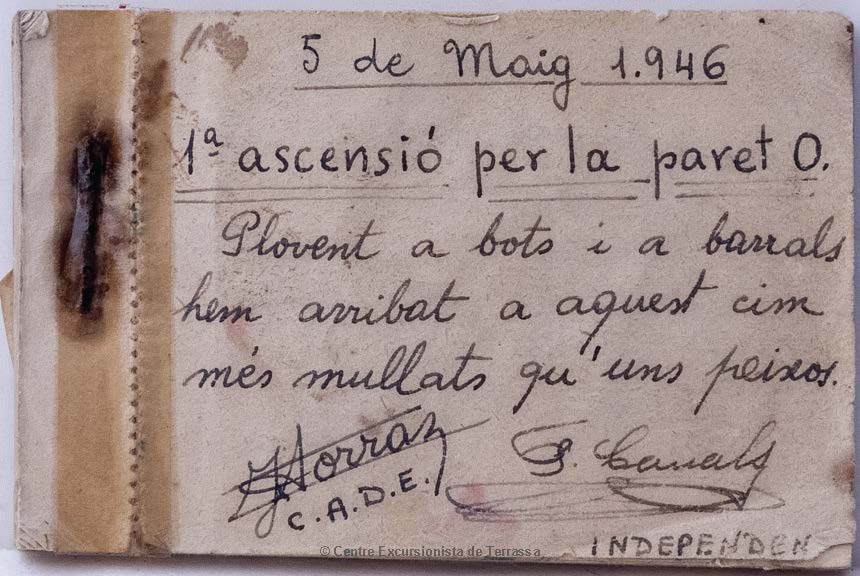 5 de Maig 1.946
1ª ascensió per la paret O.
Plovent a bots i a barrals
hem arribat a aquest cim
més mullats qu'uns peixos.
C.A.D.E.
INDEPENDEN
© Centre Excursionista de Terrassa